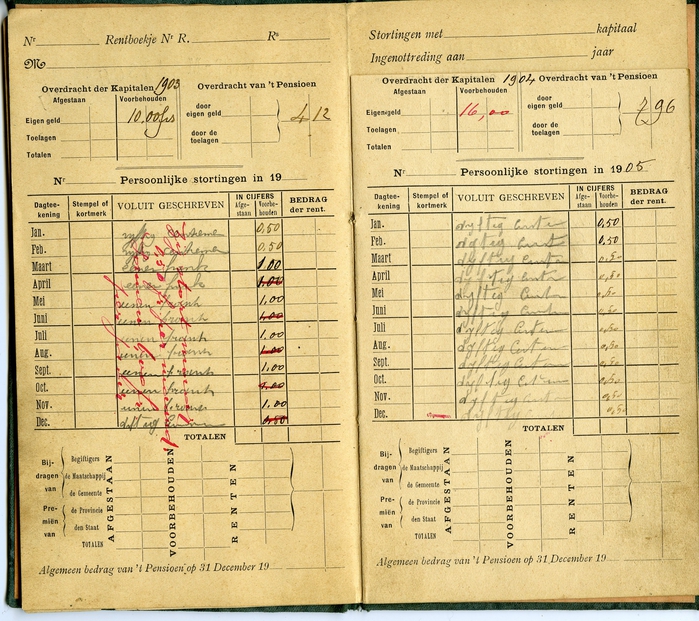 Nr Rentboekje Nr R. Rs
M
Overdracht der Kapitalen 1903 Overdracht van 't Pensioen
Afgestaan Voorbehouden
Eigen geld 10.00 door eigen geld 4 12
Toelagen door de toelagen
Totalen
Nr Persoonlijke stortingen in 19
Dagteekening Stempel of kortmerk VOLUIT GESCHREVEN IN CIJFERS Afgestaan Voorbehouden BEDRAG der rent.
Jan. 0,50
Feb. 0,50
Maart eenen frank 1.00
April eenen frank 1.00
Mei eenen frank 1,00
Juni eenen frank 1.00
Juli eenen frank 1.00
Aug. eenen 1.00
Sept. eenen frank 1,00
Oct. eenen frank 1.00
Nov. eenen 1,00
Dec. dyftig 0.50
TOTALEN
Bijdragen van Begiftigers
de Maatschappij
de Gemeente
Premiën van de Provincie
den Staat
TOTALEN
AFGESTAAN
VOORBEHOUDEN
RENTEN
Algemeen bedrag van 't Pensioen op 31 December 19
Stortingen met kapitaal
Ingenottreding aan jaar
Overdracht der Kapitalen 1904 Overdracht van 't Pensioen
Afgestaan Voorbehouden
Eigen geld 16,00 door eigen geld 96
Toelagen door de toelagen
Totalen
Nr Persoonlijke stortingen in 1905
Dagteekening Stempel of kortmerk VOLUIT GESCHREVEN IN CIJFERS Afgestaan Voorbehouden BEDRAG der rent.
Jan. dyftig Centen 0,50
Feb. dyftig Centen 0,50
Maart dyftig Centen 0,50
April dyftig Centen 0,50
Mei dyftig Centen 0,50
Juni dyftig Centen 0,50
Juli dyftig Centen 0,50
Aug. dyftig Centen 0,50
Sept. dyftig Centen 0,50
Oct. dyftig Centen 0,50
Nov. dyftig Centen 0,50
Dec. dyftig 0,50
TOTALEN
Bijdragen van Begiftigers
de Maatschappij
de Gemeente
Premiën van de Provincie
den Staat
TOTALEN
AFGESTAAN
VOORBEHOUDEN
RENTEN
Algemeen bedrag van 't Pensioen op 31 December 19